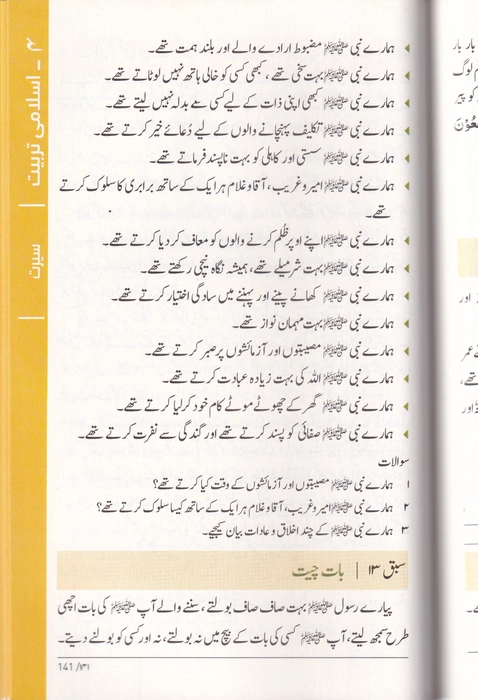 ہمارے نبی ﷺ مضبوط ارادے والے اور بلند ہمت تھے۔
ہمارے نبی ﷺ بہت سخی تھے، کبھی کسی کو خالی ہاتھ نہیں لوٹاتے تھے۔
ہمارے نبی ﷺ کبھی اپنی ذات کے لیے کسی سے بدلہ نہیں لیتے تھے۔
ہمارے نبی ﷺ تکلیف پہنچانے والوں کے لیے دُعائے خیر کرتے تھے۔
ہمارے نبی ﷺ سستی اور کاہلی کو بہت ناپسند فرماتے تھے۔
ہمارے نبی ﷺ امیر و غریب، آقا و غلام ہر ایک کے ساتھ برابری کا سلوک کرتے
تھے۔
ہمارے نبی ﷺ اپنے اوپر ظُلم کرنے والوں کو معاف کر دیا کرتے تھے۔
ہمارے نبی ﷺ بہت شرمیلے تھے، ہمیشہ نگاہ نیچی رکھتے تھے۔
ہمارے نبی ﷺ کھانے پینے اور پہننے میں سادگی اختیار کرتے تھے۔
ہمارے نبی ﷺ بہت مہمان نواز تھے۔
ہمارے نبی ﷺ مصیبتوں اور آزمائشوں پر صبر کرتے تھے۔
ہمارے نبی ﷺ اللہ کی بہت زیادہ عبادت کرتے تھے۔
ہمارے نبی ﷺ گھر کے چھوٹے موٹے کام خود کر لیا کرتے تھے۔
ہمارے نبی ﷺ صفائی کو پسند کرتے تھے اور گندگی سے نفرت کرتے تھے۔
سوالات
۱ ہمارے نبی ﷺ مصیبتوں اور آزمائشوں کے وقت کیا کرتے تھے؟
۲ ہمارے نبی ﷺ امیر و غریب، آقا و غلام ہر ایک کے ساتھ کیسا سلوک کرتے تھے؟
۳ ہمارے نبی ﷺ کے چند اخلاق و عادات بیان کیجیے۔
سبق ۱۳ | بات چیت
پیارے رسول ﷺ بہت صاف صاف بولتے، سننے والے آپ ﷺ کی بات اچھی
طرح سمجھ لیتے، آپ ﷺ کسی کی بات کے بیچ میں نہ بولتے، نہ اور کسی کو بولنے دیتے۔
141/۱۴۱
۴ ـ اسلامی تربیت | سیرت |